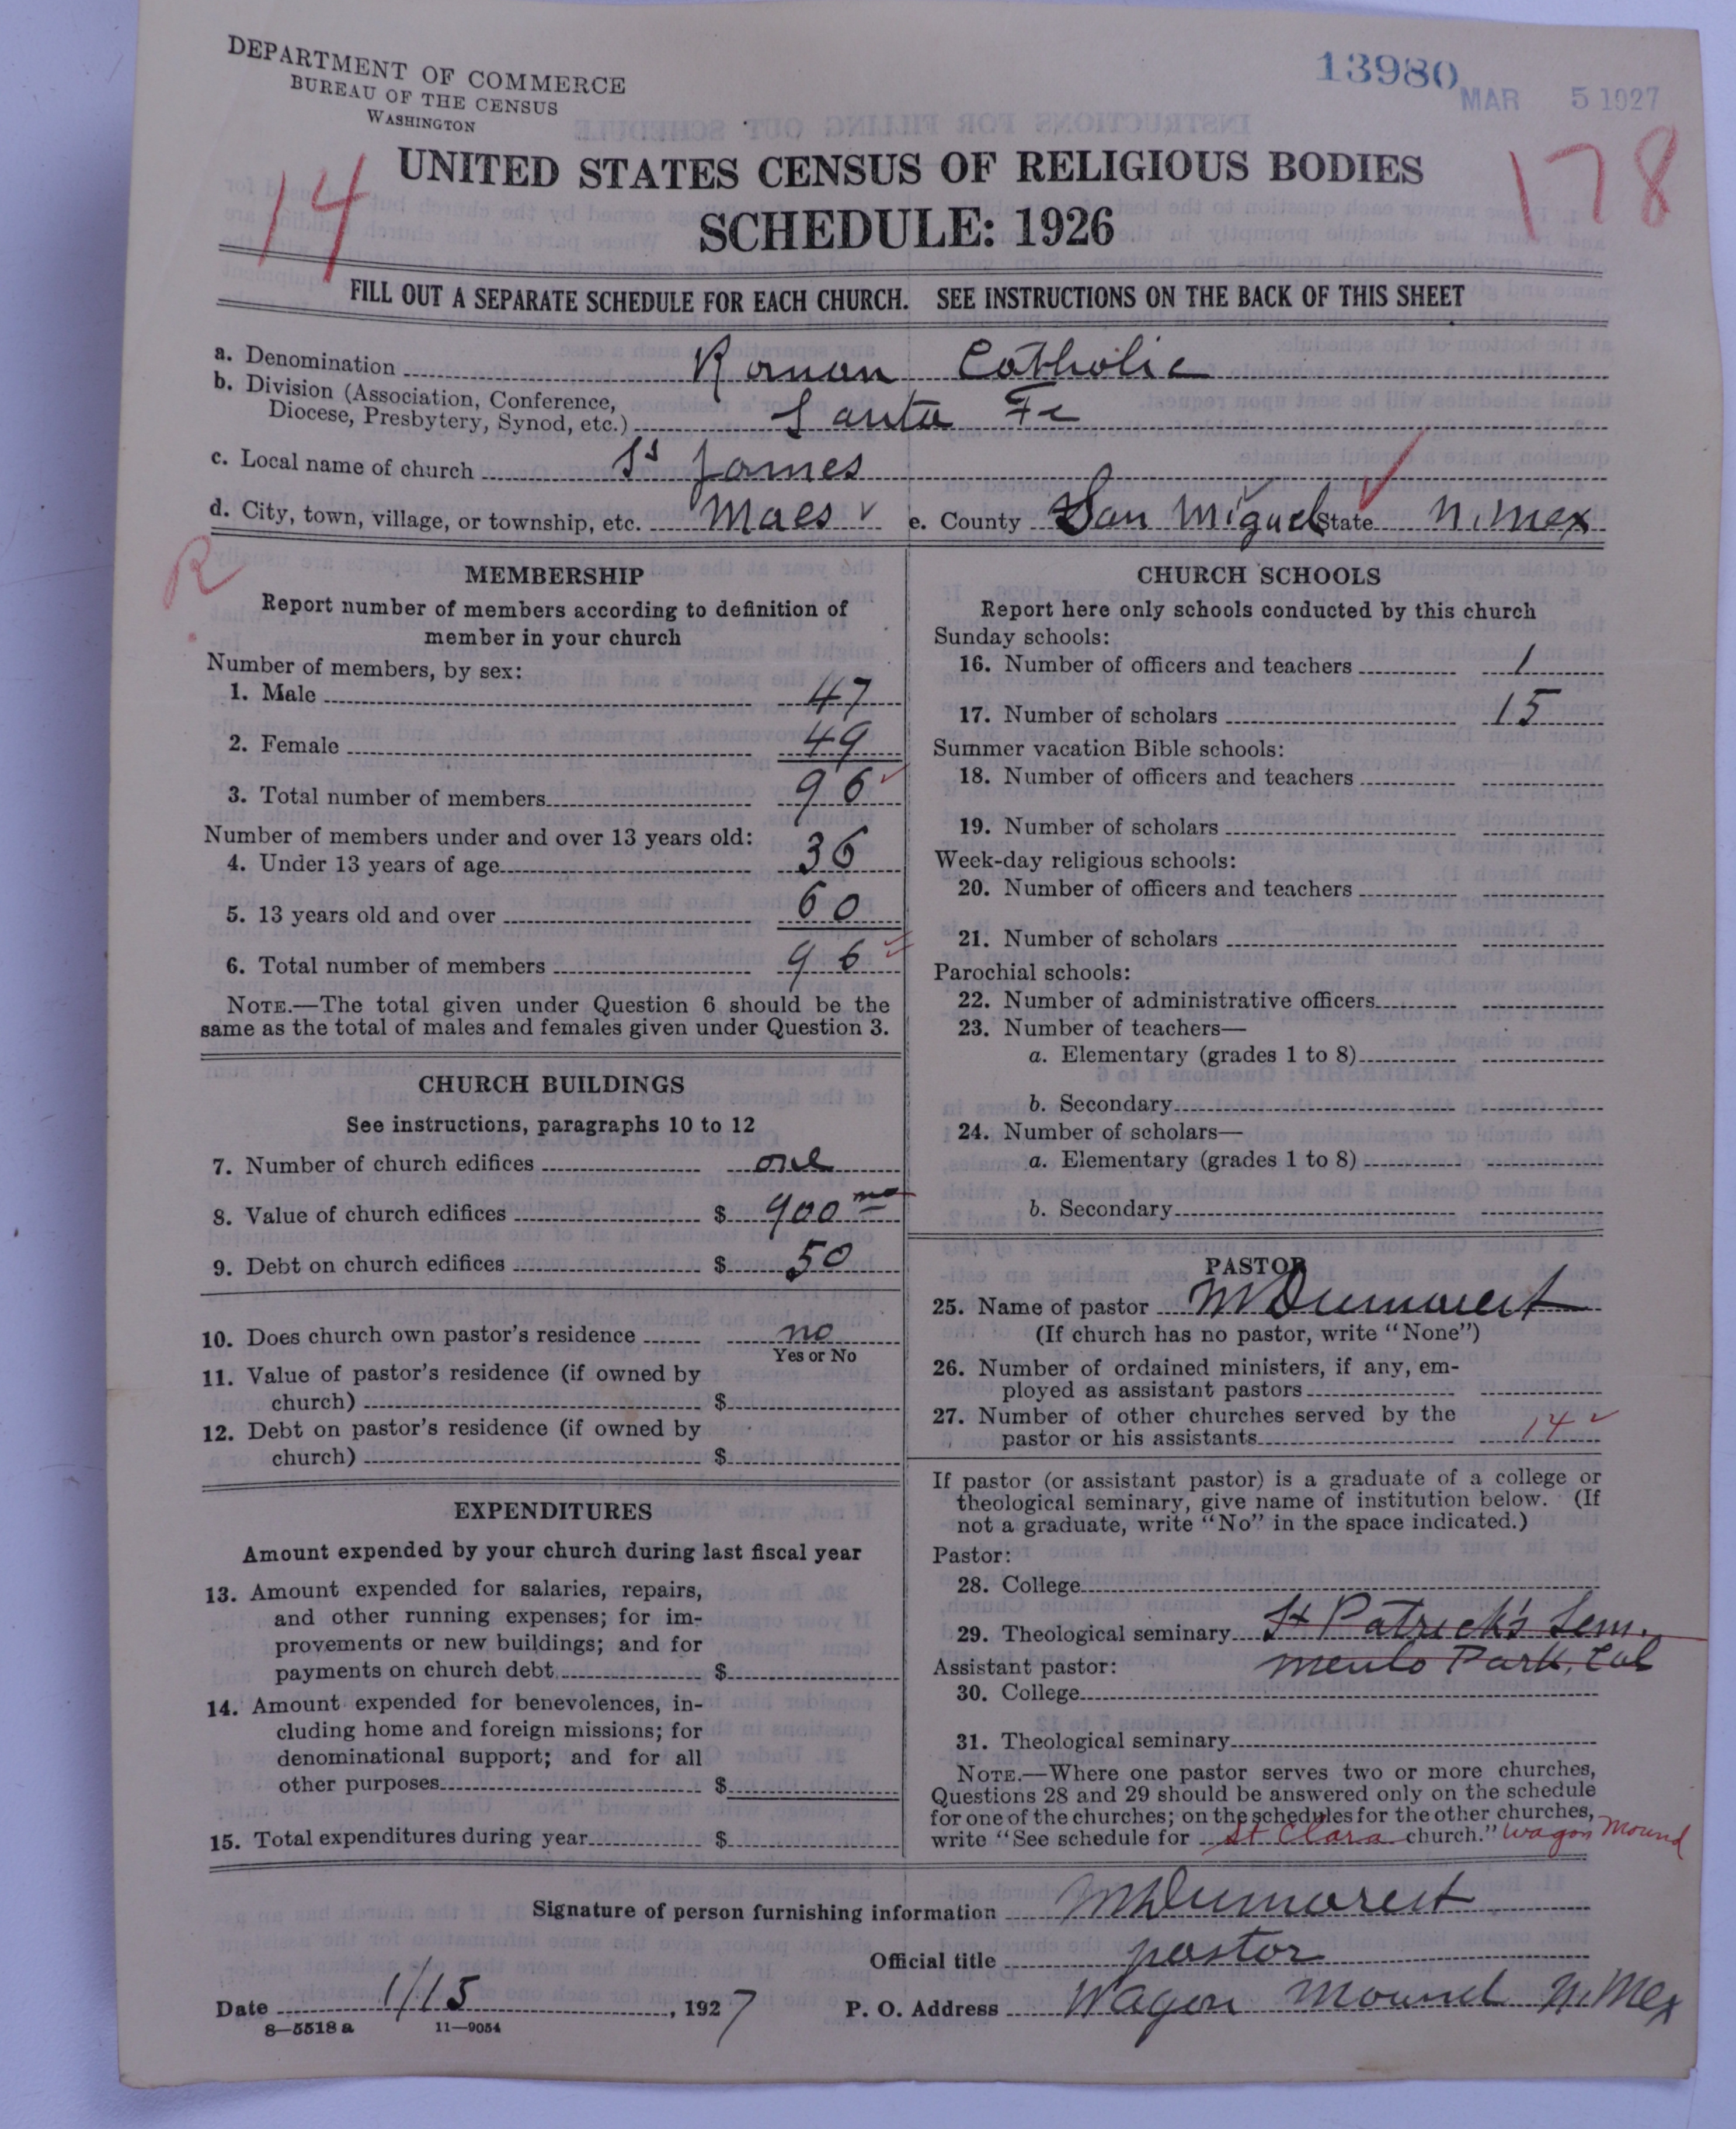 DEPARTMENT OF COMMERCE
BUREAU OF THE CENSUS
WASHINGTON
13980
MAR 5 1927
14
178
UNITED STATES CENSUS OF RELIGIOUS BODIES
SCHEDULE: 1926
FILL OUT A SEPARATE SCHEDULE FOR EACH CHURCH. SEE INSTRUCTIONS ON THE BACK OF THIS SHEET
a. Denomination Roman Catholic
b. Division (Association, Conference,
Diocese, Presbytery, Synod, etc.) Santa Fe
c. Local name of church St James
d. City, town, village, or township, etc. Maes e. County San Miguel State N. Mex
R
MEMBERSHIP
Report number of members according to definition of
member in your church
Number of members, by sex:
1. Male 47
2. Female 49
3. Total number of members 96
Number of members under and over 13 years old:
4. Under 13 years of age 36
5. 13 years old and over 60
6. Total number of members 96
NOTE.—The total given under Question 6 should be the
same as the total of males and females given under Question 3.
CHURCH BUILDINGS
See instructions, paragraphs 10 to 12
7. Number of church edifices one
8. Value of church edifices $ 900 no
9. Debt on church edifices $ 50
10. Does church own pastor's residence no
Yes or No
11. Value of pastor's residence (if owned by
church) $
12. Debt on pastor's residence (if owned by
church) $
EXPENDITURES
Amount expended by your church during last fiscal year
13. Amount expended for salaries, repairs,
and other running expenses; for im-
provements or new buildings; and for
payments on church debt $
14. Amount expended for benevolences, in-
cluding home and foreign missions; for
denominational support; and for all
other purposes $
15. Total expenditures during year $
CHURCH SCHOOLS
Report here only schools conducted by this church
Sunday schools:
16. Number of officers and teachers 1
17. Number of scholars 15
Summer vacation Bible schools:
18. Number of officers and teachers
19. Number of scholars
Week-day religious schools:
20. Number of officers and teachers
21. Number of scholars
Parochial schools:
22. Number of administrative officers
23. Number of teachers—
a. Elementary (grades 1 to 8)
b. Secondary
24. Number of scholars—
a. Elementary (grades 1 to 8)
b. Secondary
PASTOR
25. Name of pastor M Dumarest
(If church has no pastor, write "None")
26. Number of ordained ministers, if any, em-
ployed as assistant pastors
27. Number of other churches served by the
pastor or his assistants 14
If pastor (or assistant pastor) is a graduate of a college or
theological seminary, give name of institution below. (If
not a graduate, write "No" in the space indicated.)
Pastor:
28. College
29. Theological seminary St Patrick's Sem.
Menlo Park, Cal
Assistant pastor:
30. College
31. Theological seminary
NOTE.—Where one pastor serves two or more churches,
Questions 28 and 29 should be answered only on the schedule
for one of the churches; on the schedules for the other churches,
write "See schedule for St Clara church." Wagon Mound
Signature of person furnishing information M Dumarest
Official title pastor
Date 1/15, 1927 P. O. Address Wagon Mound N. Mex
8—5518 a 11—9054